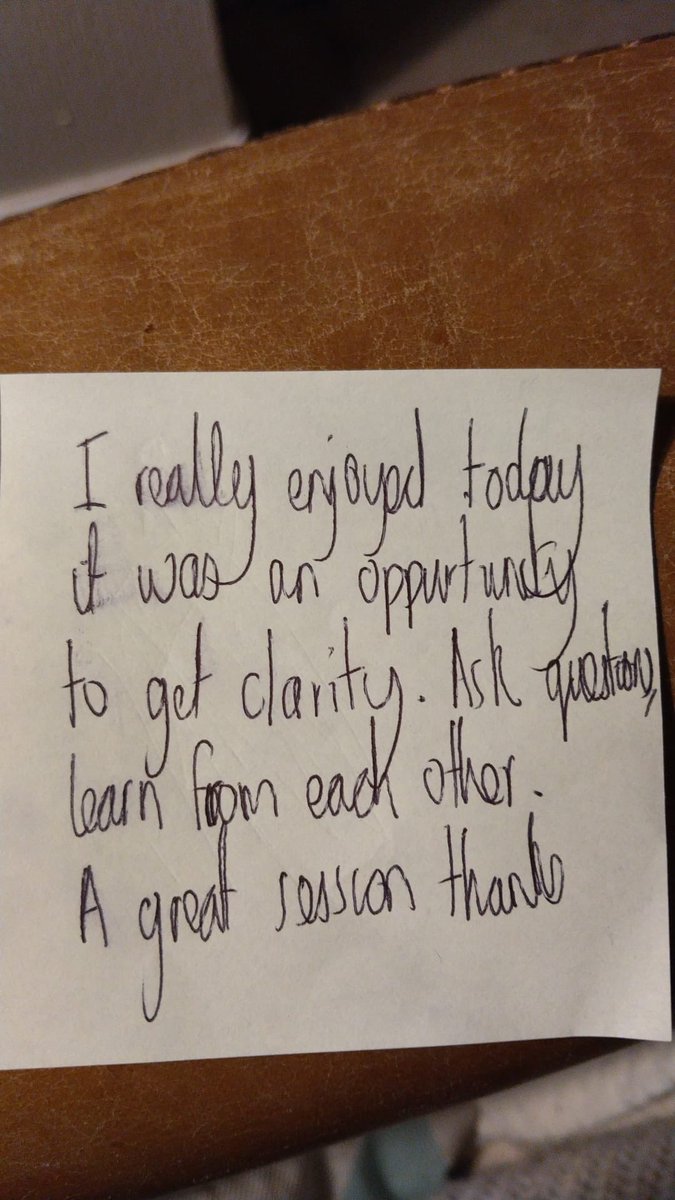 I really enjoyed today
it was an oppurtunity
to get clarity. Ask questions,
learn from each other.
A great session thanks